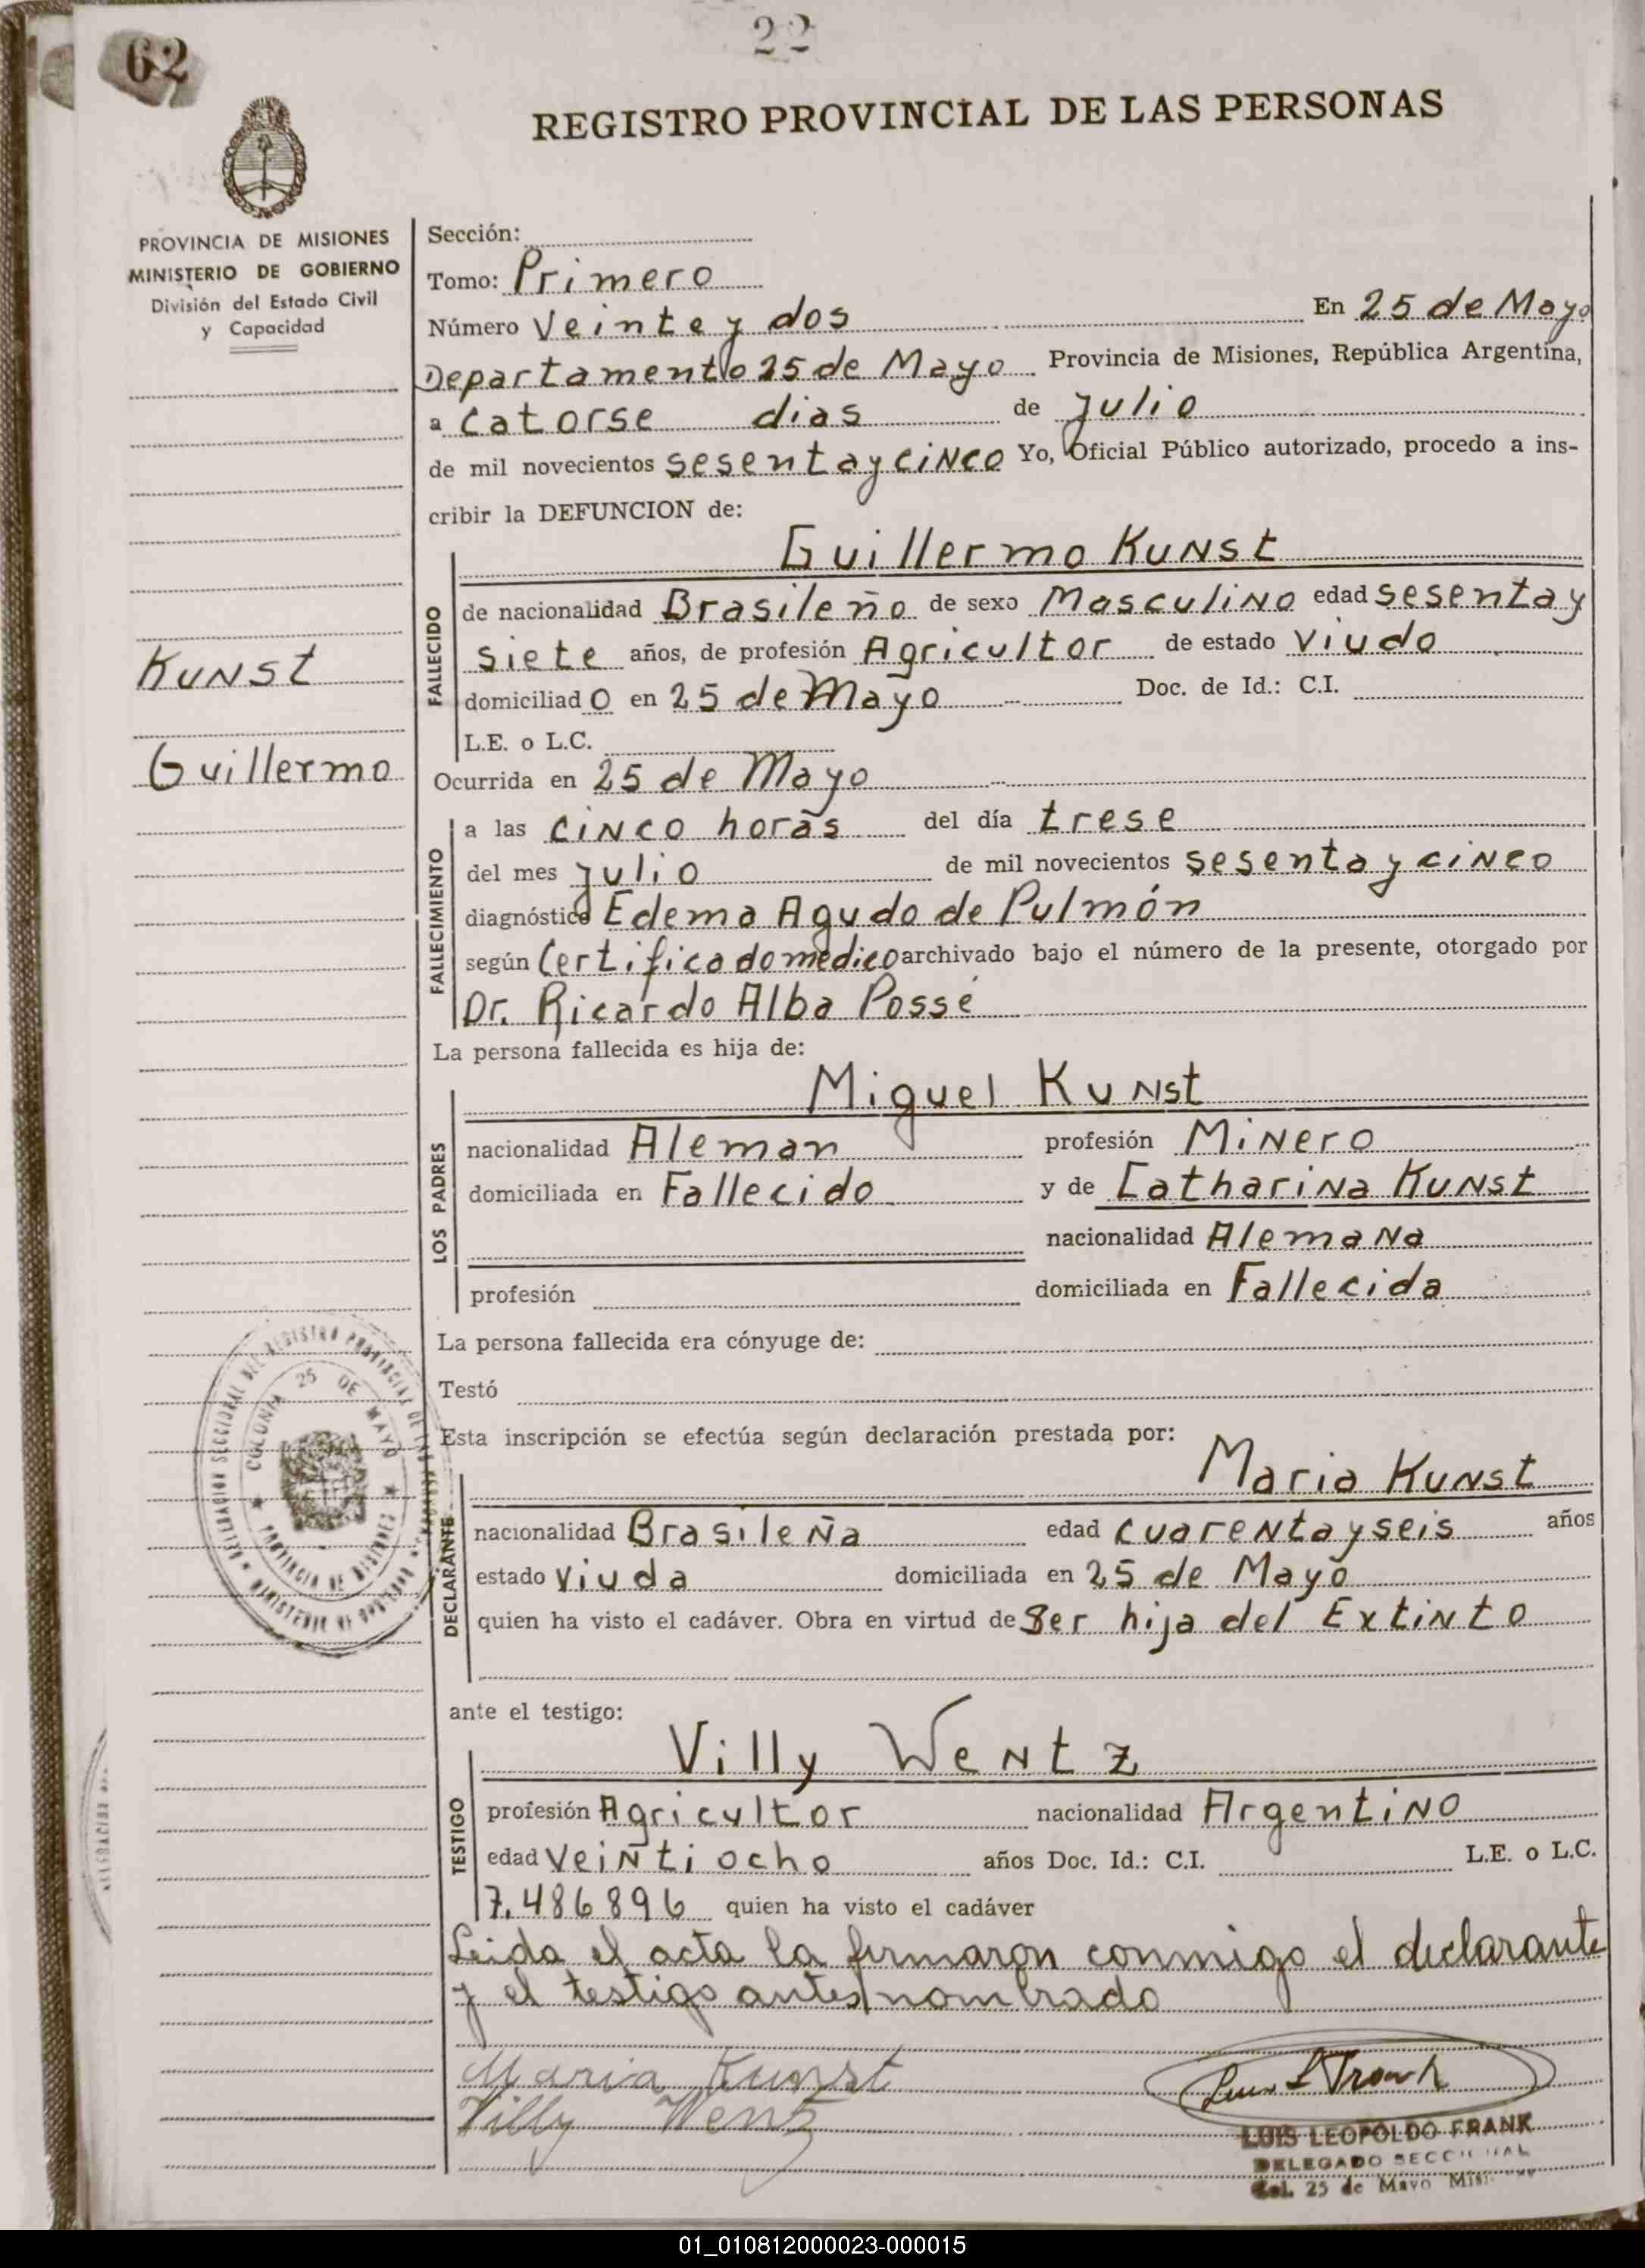 62
22
REGISTRO PROVINCIAL DE LAS PERSONAS
PROVINCIA DE MISIONES
MINISTERIO DE GOBIERNO
División del Estado Civil
y Capacidad
Sección:
Tomo: Primero
Número Veinte y dos En 25 de Mayo
Departamento 25 de Mayo Provincia de Misiones, República Argentina,
a Catorse dias de Julio
de mil novecientos sesenta y cinco Yo, Oficial Público autorizado, procedo a ins-
cribir la DEFUNCION de:
Guillermo Kunst
FALLECIDO
de nacionalidad Brasileño de sexo Masculino edad sesenta y
siete años, de profesión Agricultor de estado Viudo
domiciliado en 25 de Mayo Doc. de Id.: C.I.
L.E. o L.C.
Kunst
Guillermo
Ocurrida en 25 de Mayo
FALLECIMIENTO
a las cinco horas del día trese
del mes Julio de mil novecientos sesenta y cinco
diagnóstico Edema Agudo de Pulmón
según Certificado medico archivado bajo el número de la presente, otorgado por
Dr. Ricardo Alba Posse
La persona fallecida es hija de:
LOS PADRES
Miguel Kunst
nacionalidad Aleman profesión Minero
domiciliada en Fallecido y de Catharina Kunst
nacionalidad Alemana
profesión domiciliada en Fallecida
La persona fallecida era cónyuge de:
Testó
Esta inscripción se efectúa según declaración prestada por:
DECLARANTE
Maria Kunst
nacionalidad Brasileña edad cuarenta y seis años
estado Viuda domiciliada en 25 de Mayo
quien ha visto el cadáver. Obra en virtud de Ser hija del Extinto
COLONIA 25 DE MAYO
PROVINCIA DE MISIONES
ante el testigo:
TESTIGO
Villy Wentz
profesión Agricultor nacionalidad Argentino
edad Veinti ocho años Doc. Id.: C.I. L.E. o L.C.
7.486896 quien ha visto el cadáver
Leida el acta la firmaron conmigo el declarante
y el testigo antes nombrado
Maria Kunst
Villy Wentz
LUIS LEOPOLDO FRANK
DELEGADO SECCIONAL
Col. 25 de Mayo
01_010812000023-000015